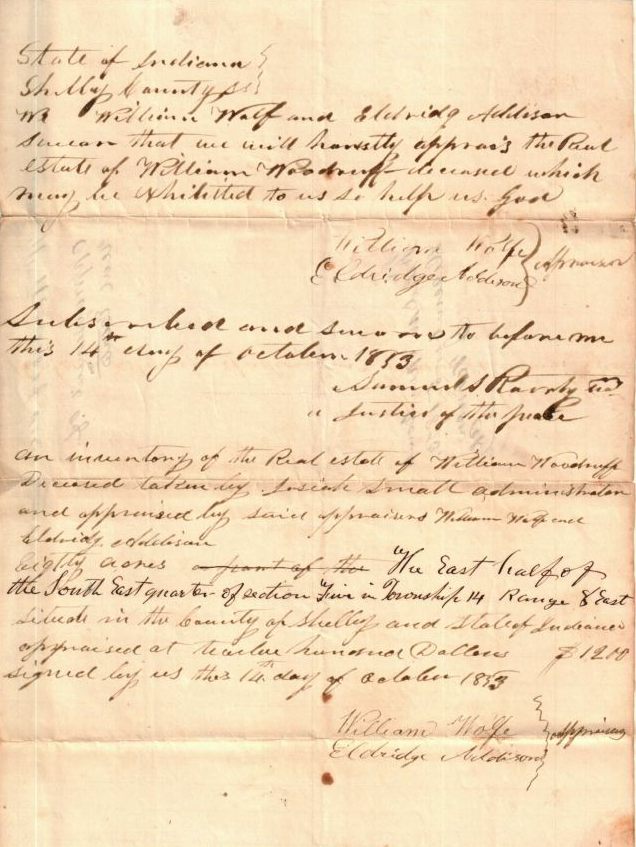 State of Indiana
Shelby County SS
We William Wolf and Eldridg Addison
swear that we will honestly apprais the Real
estate of William Woodruff deceased which
may be exhibitted to us so help us God
William Wolfe
Eldridge Addison
Appraisors
Subscribed and sworn to before me
this 14th day of October 1853
Samuel S
a Justice of the peace
an inventory of the Real estate of William Woodruff
Deceased taken by Josiah Small administrator
and appraised by said appraisers William Wolf and
Eldridg Addison
Eighty acres a part of the The East half of
the South East quarter of section Five in Township 14 Range 8 East
situate in the County of Shelby and State of Indiana
appraised at twelve hundred Dollars $1200
signed by us this 14th day of October 1853
William Wolfe
Eldridge Addison
appraisers